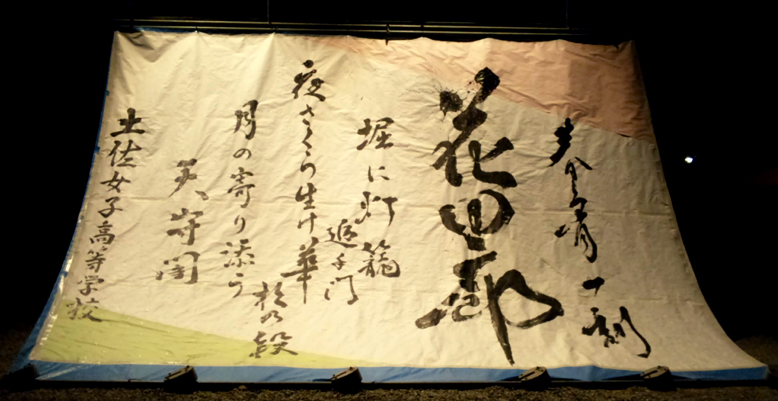 一刻
花回廊
堀に灯籠
追手門
夜さくら生け華
杉乃段
月の寄り添う
天守閣
土佐女子高等学校